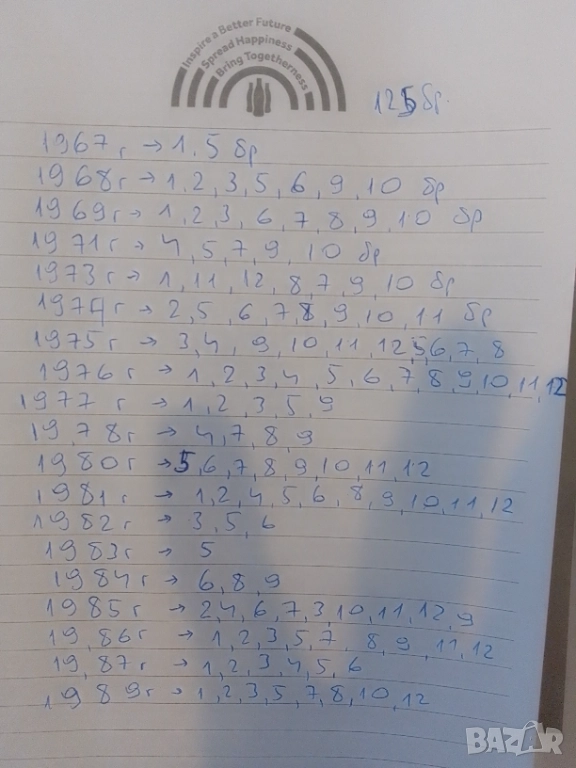 Inspire a Better Future
Spread Happiness
Bring Togetherness
125 бр.
1967 г → 1, 5 бр
1968 г → 1, 2, 3, 5, 6, 9, 10 бр
1969 г → 1, 2, 3, 6, 7, 8, 9, 10 бр
1971 г → 4, 5, 7, 9, 10 бр
1973 г → 1, 11, 12, 8, 7, 9, 10 бр
1974 г → 2, 5, 6, 7, 8, 9, 10, 11 бр
1975 г → 3, 4, 9, 10, 11, 12, 5, 6, 7, 8
1976 г → 1, 2, 3, 4, 5, 6, 7, 8, 9, 10, 11, 12
1977 г → 1, 2, 3, 5, 9
1978 г → 4, 7, 8, 9
1980 г → 5, 6, 7, 8, 9, 10, 11, 12
1981 г → 1, 2, 4, 5, 6, 8, 9, 10, 11, 12
1982 г → 3, 5, 6
1983 г → 5
1984 г → 6, 8, 9
1985 г → 2, 4, 6, 7, 3, 10, 11, 12, 9
1986 г → 1, 2, 3, 5, 7, 8, 9, 11, 12
1987 г → 1, 2, 3, 4, 5, 6
1989 г → 1, 2, 3, 5, 7, 8, 10, 12
BAZAR